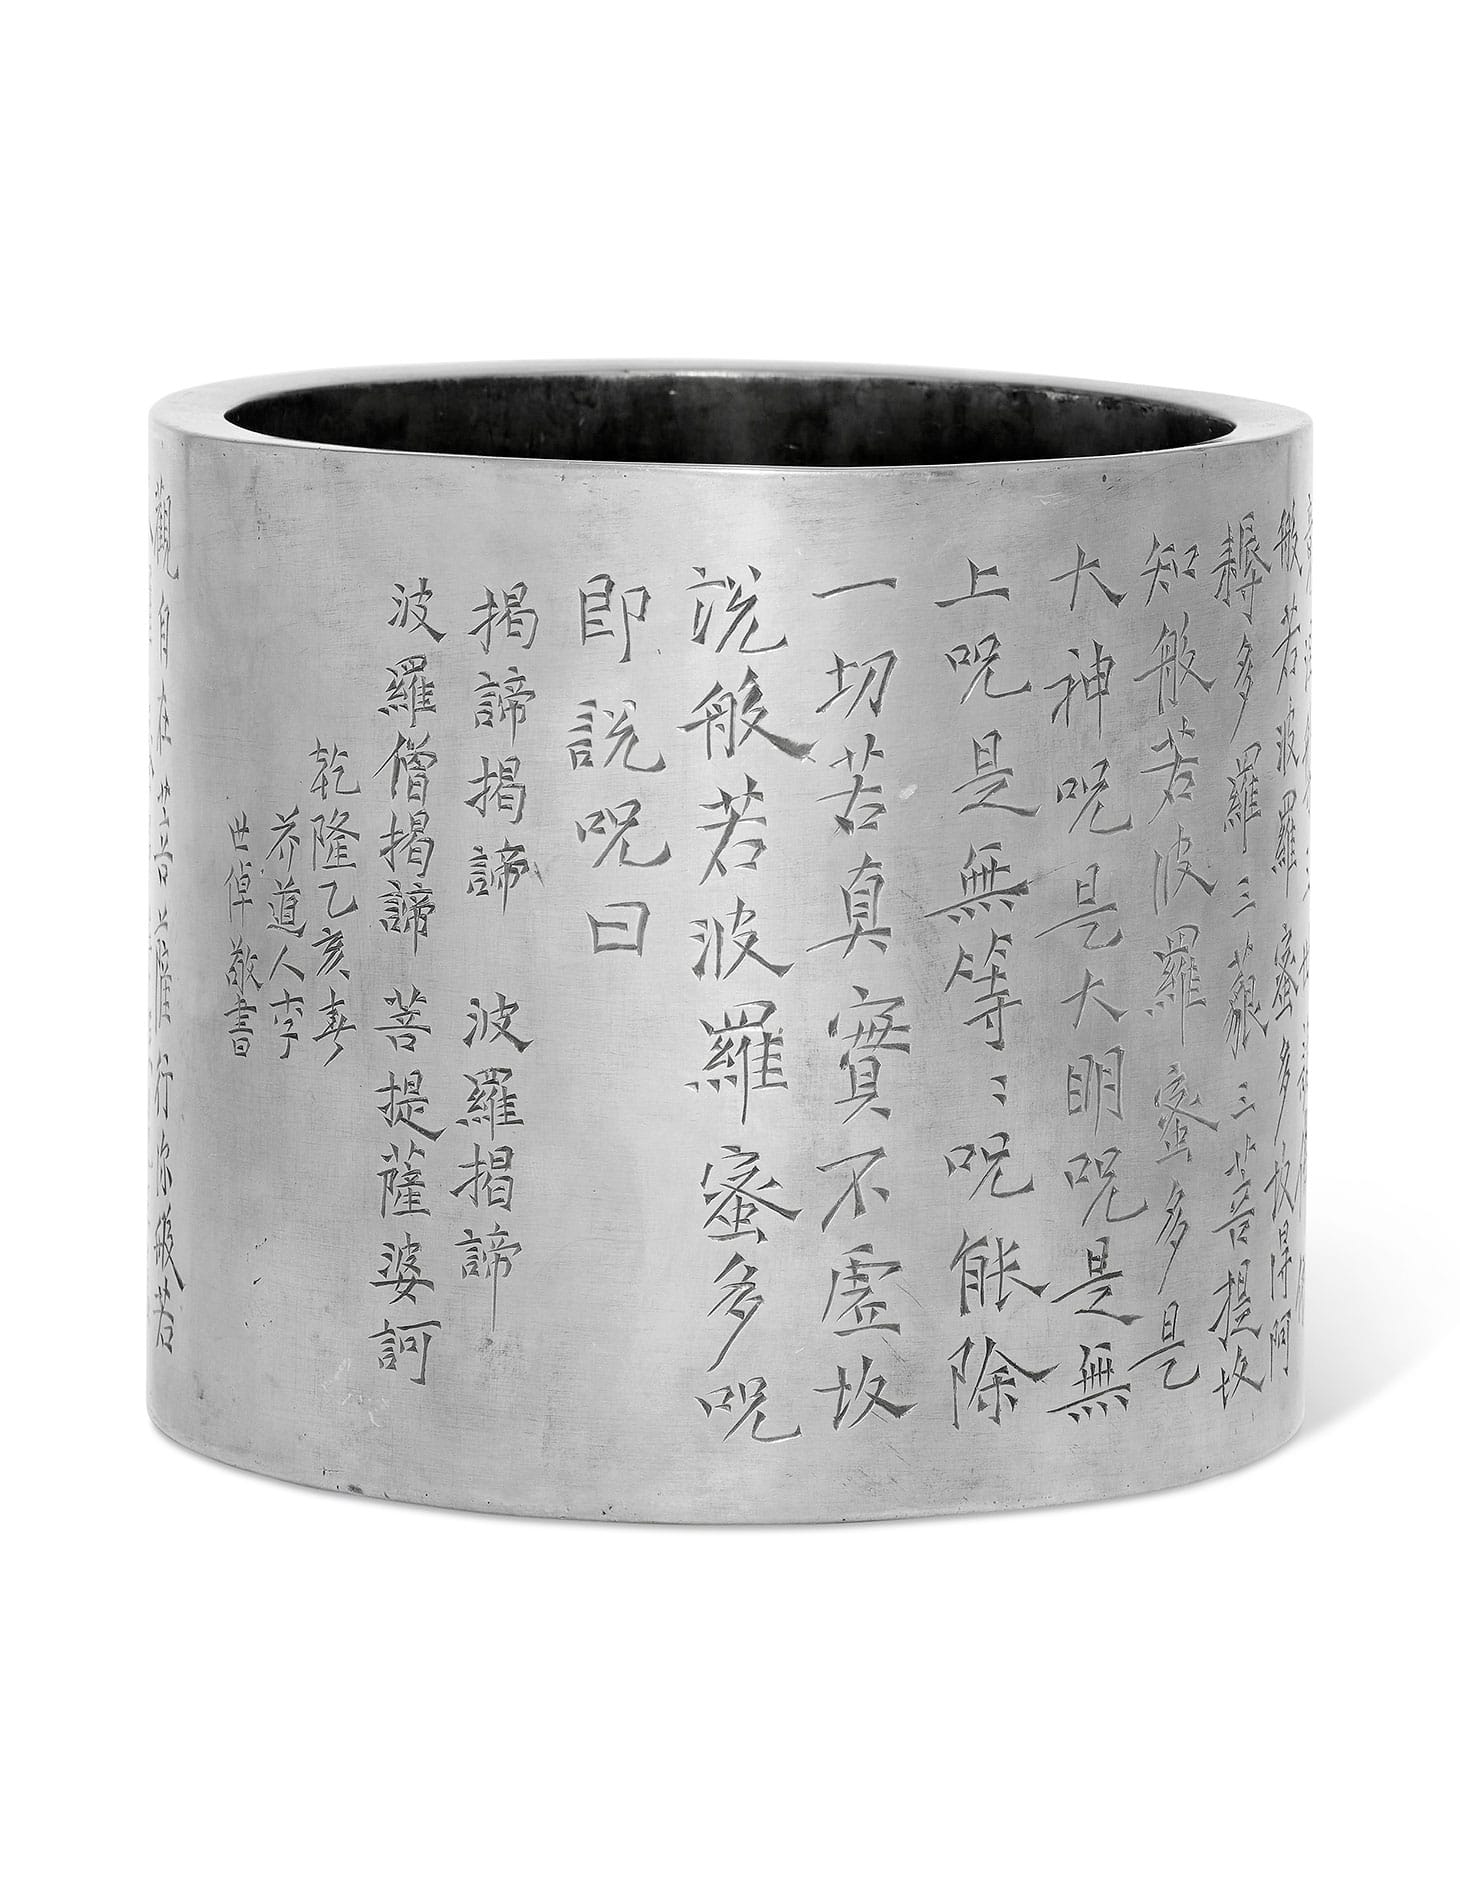 般若波羅蜜多故得阿
耨多羅三藐三菩提故
知般若波羅蜜多是
大神呪是大明呪是無
上呪是無等〻呪能除
一切苦真實不虛故
說般若波羅蜜多呪
即說呪曰
揭諦揭諦 波羅揭諦
波羅僧揭諦 菩提薩婆訶
乾隆乙亥春
芥道人李
世倬敬書
觀自在菩薩行深般若